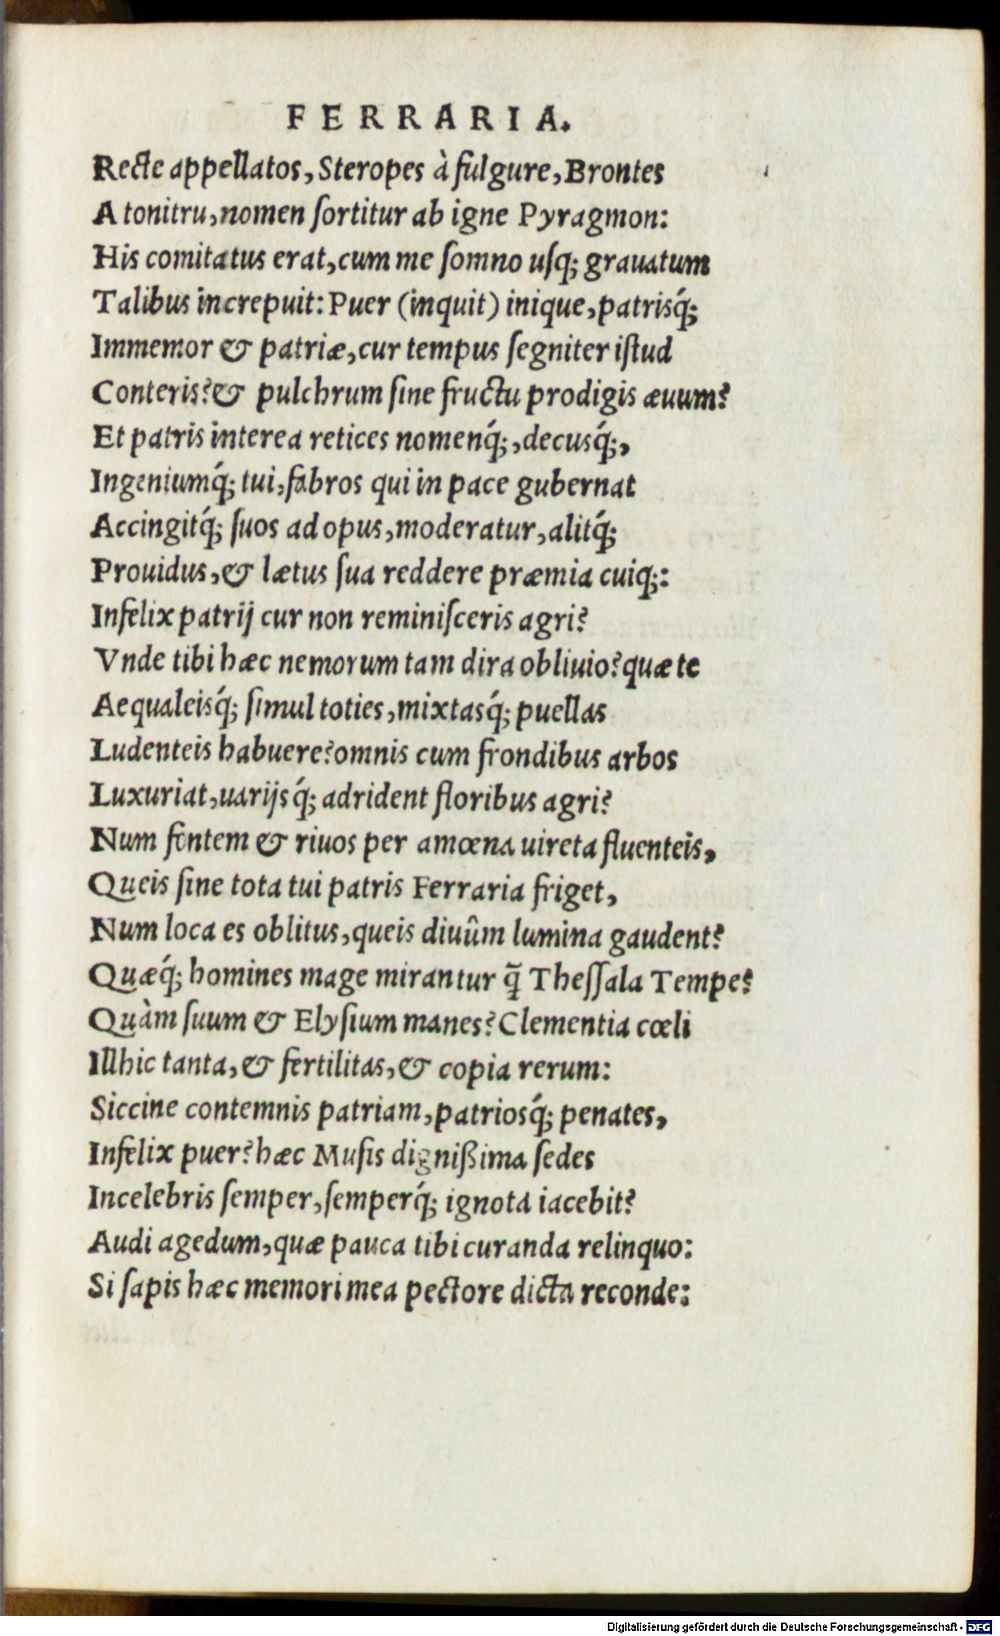 FERRARIA.
Recte appellatos, Steropes à fulgure, Brontes
A tonitru, nomen ſortitur ab igne Pyragmon:
His comitatus erat, cum me ſomno uſq; grauatum
Talibus increpuit: Puer (inquit) inique, patrisq́;
Immemor & patriæ, cur tempus ſegniter iſtud
Conteris? & pulchrum ſine fructu prodigis æuum?
Et patris interea retices nomenq́;, decusq́;,
Ingeniumq́; tui, fabros qui in pace gubernat
Accingitq́; ſuos ad opus, moderatur, alitq́;
Prouidus, & lætus ſua reddere præmia cuiq;:
Infelix patrij cur non reminiſceris agri?
Vnde tibi hæc nemorum tam dira obliuio? quæ te
Aequaleisq́; ſimul toties, mixtasq́; puellas
Ludenteis habuere? omnis cum frondibus arbos
Luxuriat, uarijsq́; adrident floribus agri?
Num fontem & riuos per amœna uireta fluenteis,
Queis ſine tota tui patris Ferraria friget,
Num loca es oblitus, queis diuûm lumina gaudent?
Quæq́; homines mage mirantur q̃ Theſſala Tempe?
Quàm ſuum & Elyſium manes? Clementia cœli
Illhic tanta, & fertilitas, & copia rerum:
Siccine contemnis patriam, patriosq́; penates,
Infelix puer? hæc Muſis dignißima ſedes
Incelebris ſemper, ſemperq́; ignota iacebit?
Audi agedum, quæ pauca tibi curanda relinquo:
Si ſapis hæc memori mea pectore dicta reconde:
Digitalisierung gefördert durch die Deutsche Forschungsgemeinschaft - DFG